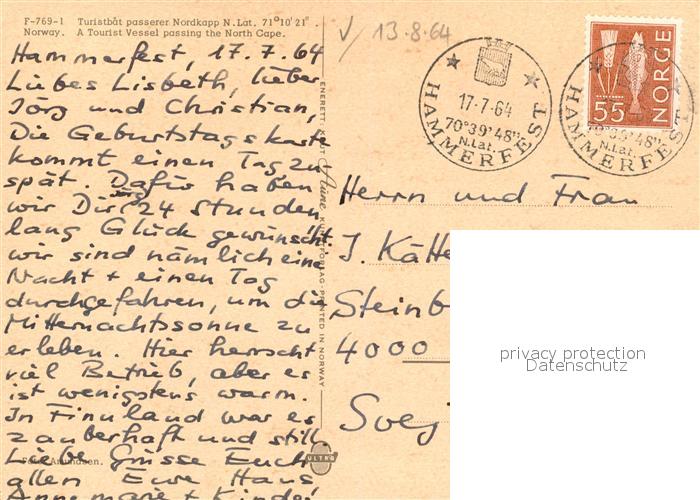 F-769-1 Turistbåt passerer Nordkapp N. Lat. 71°10'21".
Norway. A Tourist Vessel passing the North Cape.
Hammerfest, 17.7.64
Liebes Lisbeth, lieber
Jörg und Christian,
Die Geburtstagskarte
kommt einen Tag zu
spät. Dafür haben
wir Dir 24 Stunden
lang Glück gewünscht.
wir sind nämlich eine
Nacht + einen Tag
durchgefahren, um die
Mitternachtssonne zu
erleben. Hier herrscht
viel Betrieb, aber es
ist wenigstens warm.
In Finnland war es
zauberhaft und still.
Liebe Grüsse Euch
allen Eure Haus
Annemarie + Kinder
ENERETT
PRINTED IN NORWAY
ULTRA
13.8.64
17-7-64
70°39'48"
N.Lat.
HAMMERFEST
NORGE
55
70°39'48"
N.Lat.
HAMMERFEST
Herrn und Frau
J. Kätte
Steinb
4000
privacy protection
Datenschutz